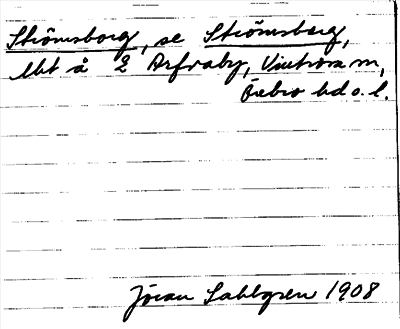 Strömsborg, se Strömsberg,
lht å 2 Arfvaby, Vintrosa sn,
Örebro hd o. l.
Jöran Sahlgren 1908